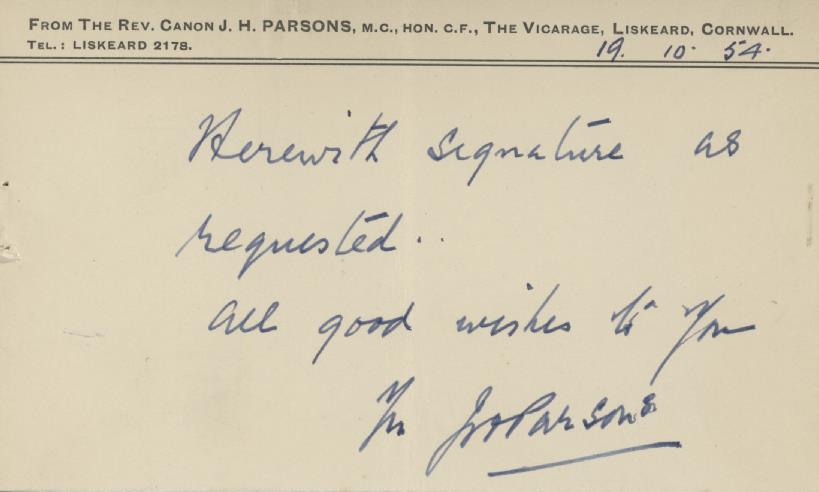 FROM THE REV. CANON J. H. PARSONS, M.C., HON. C.F., THE VICARAGE, LISKEARD, CORNWALL.
TEL.: LISKEARD 2178.
19. 10. 54.
Herewith signature as
requested..
All good wishes to you
Yrs JHParsons